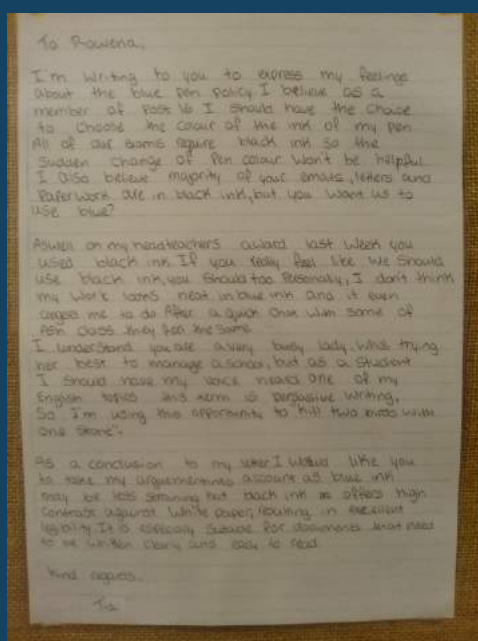 To Rowena,
I'm writing to you to express my feelings
about the blue pen policy. I believe as a
member of Post 16 I should have the choice
to choose the colour of the ink of my pen
All of our exams require black ink so the
sudden change of pen colour won't be helpful
I also believe majority of your emails, letters and
paperwork are in black ink, but you want us to
use blue?
Aswell on my headteachers award last week you
used black ink. If you really feel like we should
use black ink, you should too. Personally, I don't think
my work looks neat in blue ink and it even
me to do After a quick chat with some of
class they feel the same
I understand you are a very busy lady, whos trying
her best to manage a school, but as a student
I should have my voice heard one of my
English topics this term is persuasive writing,
So I'm using this opportunity to "kill two birds with
one stone".
As a conclusion to my letter I would like you
to take my arguement into account as blue ink
may be less straining but black ink offers high
contrast against white paper, resulting in excellent
legibility. It is especially suitable for documents that need
to be written clearly and easy to read
Kind regards,
Tia